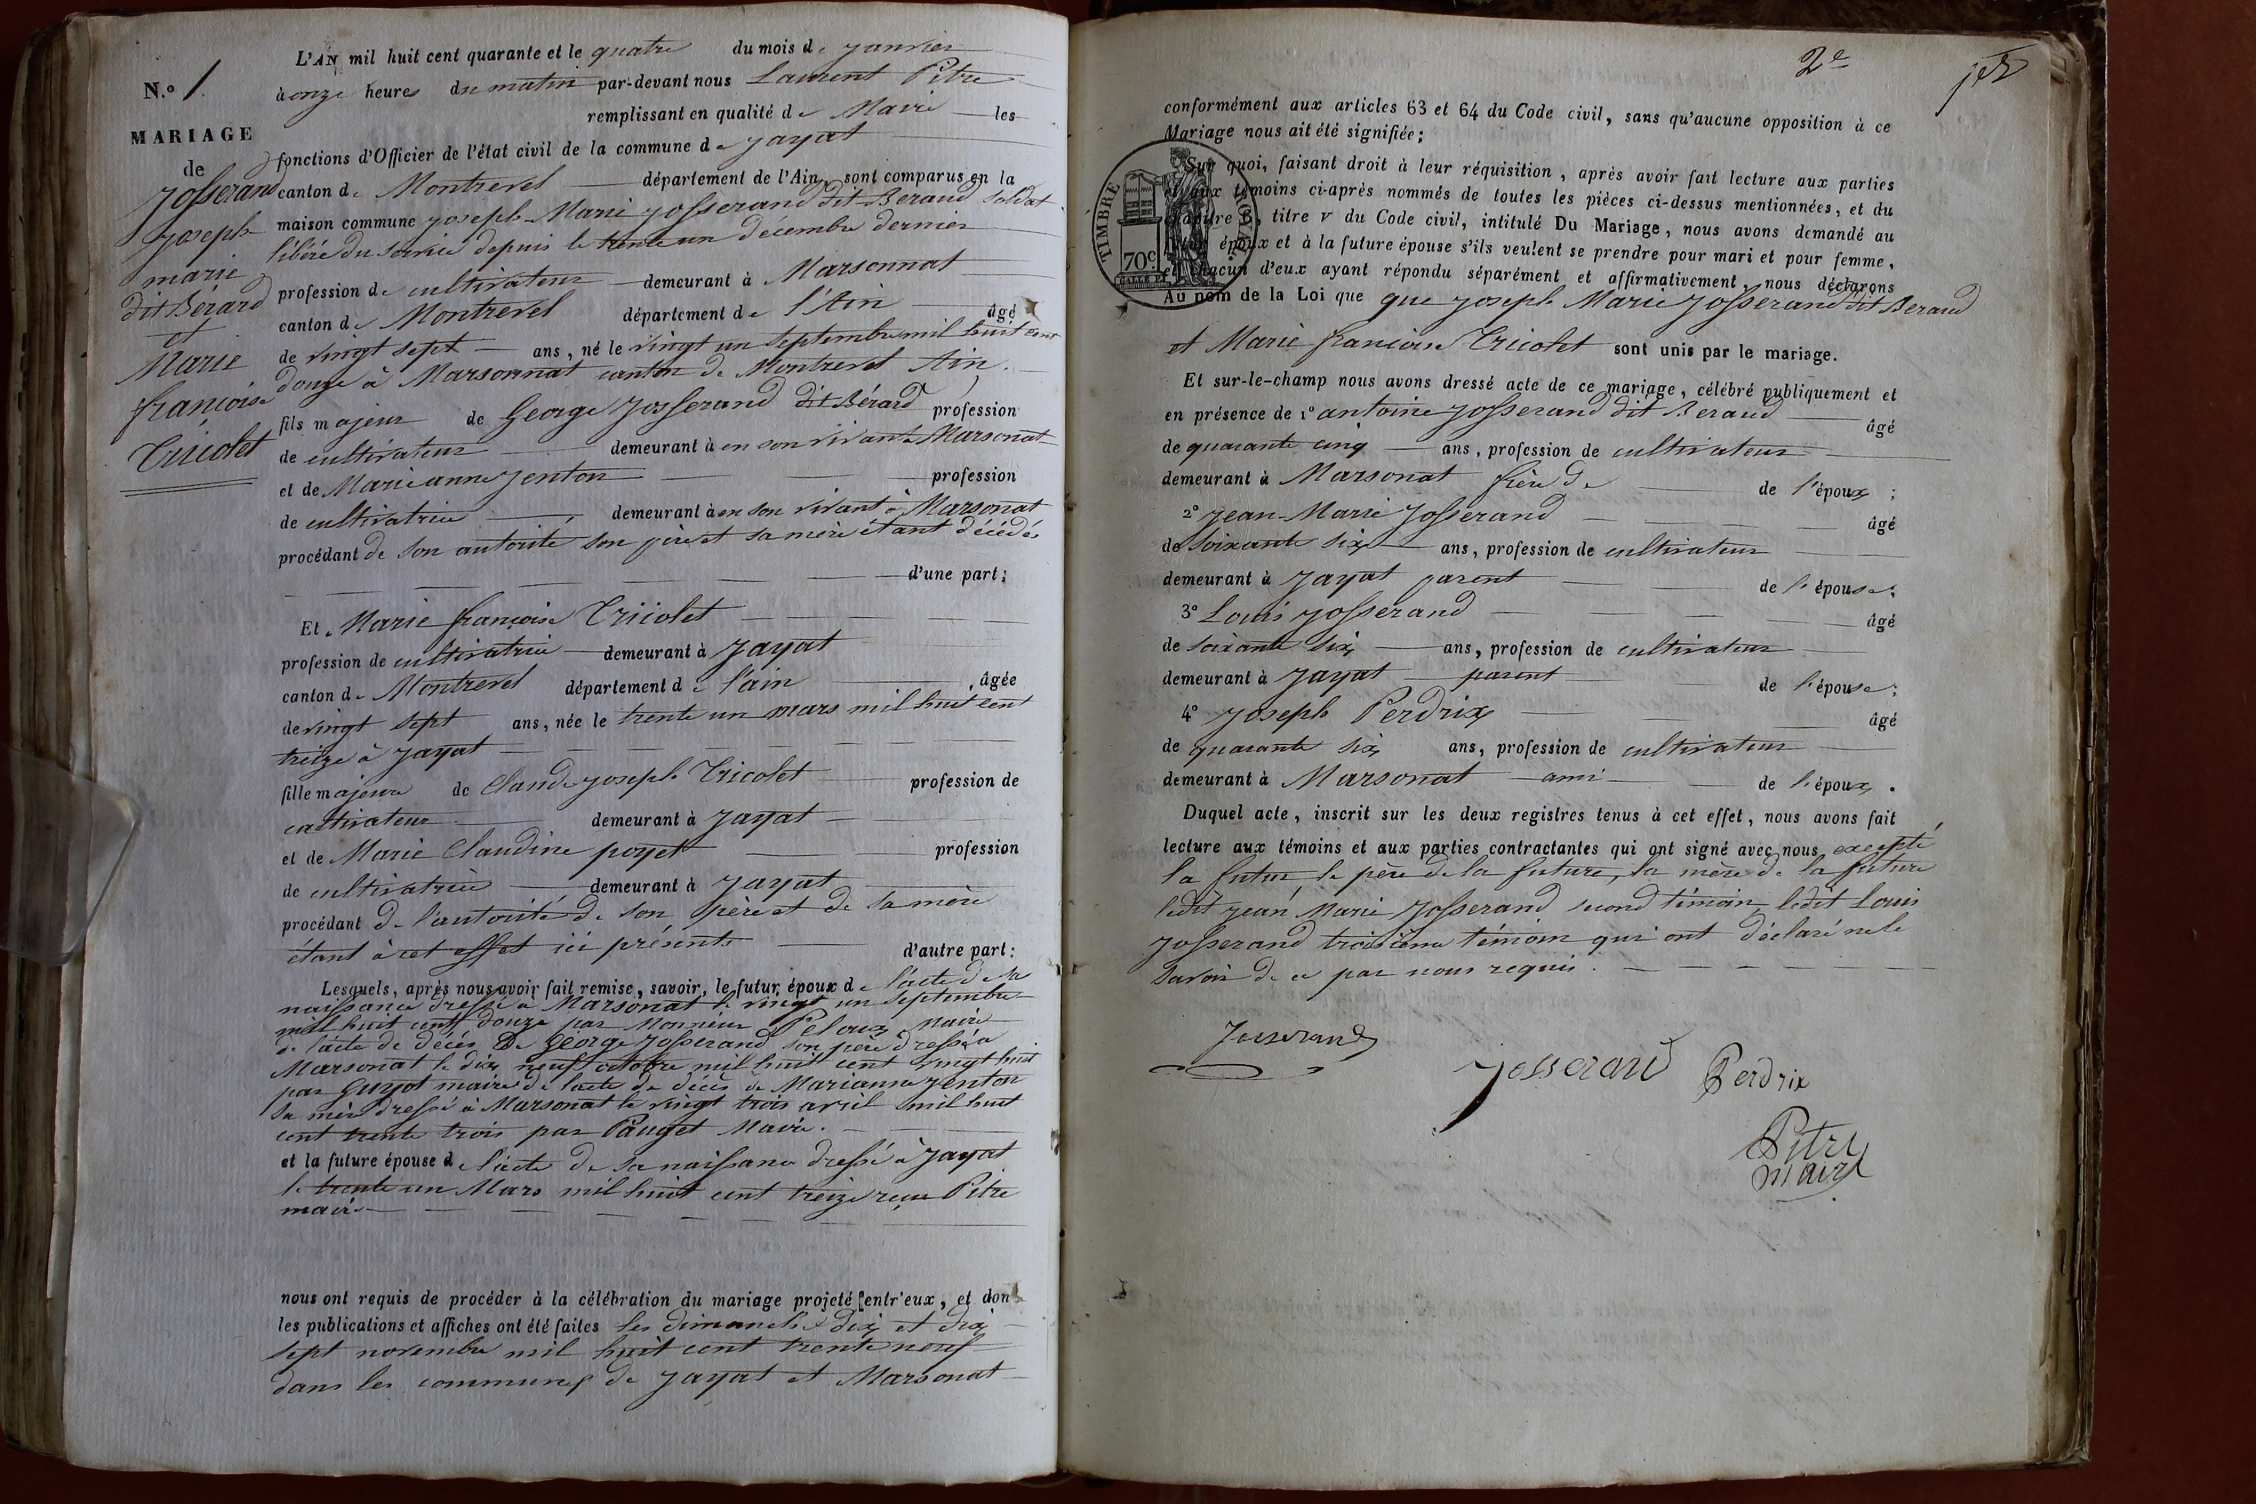 L'AN mil huit cent quarante et le quatre du mois de janvier
N.º 1
à onze heures du matin par-devant nous Laurent Pitre
remplissant en qualité de Maire les
MARIAGE
fonctions d'Officier de l'état civil de la commune de jayat
de
canton de Montrevel département de l'Ain, sont comparus en la
Josserand
maison commune joseph Marie josserand dit Beraud soldat
joseph
libéré du service depuis le trente un décembre dernier
marie
profession de cultivateur demeurant à Marsonnat
dit Bérard
canton de Montrevel département de l'Ain âgé
et
de vingt sept ans, né le vingt un septembre mil huit cent
Marie
douze à Marsonnat canton de Montrevel Ain.
françoise
fils majeur de George josserand dit Bérard profession
Tricolet
de cultivateur demeurant à en son vivant à Marsonat
et de Marieanne jenton profession
de cultivatrice demeurant à en son vivant à Marsonat
procédant de son autorité son père et sa mère étant décédés
d'une part;
Et Marie françoise Tricolet
profession de cultivatrice demeurant à jayat
canton de Montrevel département de l'ain, âgée
de vingt sept ans, née le trente un mars mil huit cent
treize à jayat
fille majeure de Claude joseph Tricolet profession de
cultivateur demeurant à jayat
et de Marie Claudine poyet profession
de cultivatrice demeurant à jayat
procédant de l'autorité de son père et de sa mère
étant à cet effet ici présents d'autre part:
Lesquels, après nous avoir fait remise, savoir, le futur époux de l'acte de sa
naissance dressé à Marsonat le vingt un septembre
mil huit cent douze par Monsieur Peloux Maire
de l'acte de décès de George josserand son père dressé à
Marsonat le dix neuf octobre mil huit cent vingt huit
par Guyot maire de l'acte de décès de Marianne jenton
sa mère dressé à Marsonat le vingt trois avril mil huit
cent trente trois par Pauget Maire.
et la future épouse de l'acte de sa naissance dressé à jayat
le trente un Mars mil huit cent treize reçu Pitre
maire
nous ont requis de procéder à la célébration du mariage projeté entr'eux, et dont
les publications et affiches ont été faites les dimanches dix et dix
sept novembre mil huit cent trente neuf
dans les communes de jayat et Marsonat
2e
conformément aux articles 63 et 64 du Code civil, sans qu'aucune opposition à ce
Mariage nous ait été signifiée;
Sur quoi, faisant droit à leur réquisition, après avoir fait lecture aux parties
et aux témoins ci-après nommés de toutes les pièces ci-dessus mentionnées, et du
chapitre 6, titre v du Code civil, intitulé Du Mariage, nous avons demandé au
futur époux et à la future épouse s'ils veulent se prendre pour mari et pour femme,
et chacun d'eux ayant répondu séparément et affirmativement, nous déclarons
TIMBRE ROYAL.
70c
Au nom de la Loi que que joseph Marie Josserand dit Beraud
et Marie francoise Tricolet sont unis par le mariage.
Et sur-le-champ nous avons dressé acte de ce mariage, célébré publiquement et
en présence de 1º antoine josserand dit Beraud âgé
de quarante cinq ans, profession de cultivateur
demeurant à Marsonat frère de de l'époux;
2º jean-Marie Josserand âgé
de soixante six ans, profession de cultivateur
demeurant à jayat parent de l'épouse;
3º Louis josserand âgé
de soixante six ans, profession de cultivateur
demeurant à jayat parent de l'épouse;
4º joseph Perdrix âgé
de quarante six ans, profession de cultivateur
demeurant à Marsonat ami de l'époux.
Duquel acte, inscrit sur les deux registres tenus à cet effet, nous avons fait
lecture aux témoins et aux parties contractantes qui ont signé avec nous excepté
la future le père de la future, la mère de la future
ledit jean Marie josserand second témoin ledit Louis
josserand troisième témoin qui ont déclaré ne le
savoir de ce par nous requis.
Josserand
josserand Perdrix
Pitre
maire